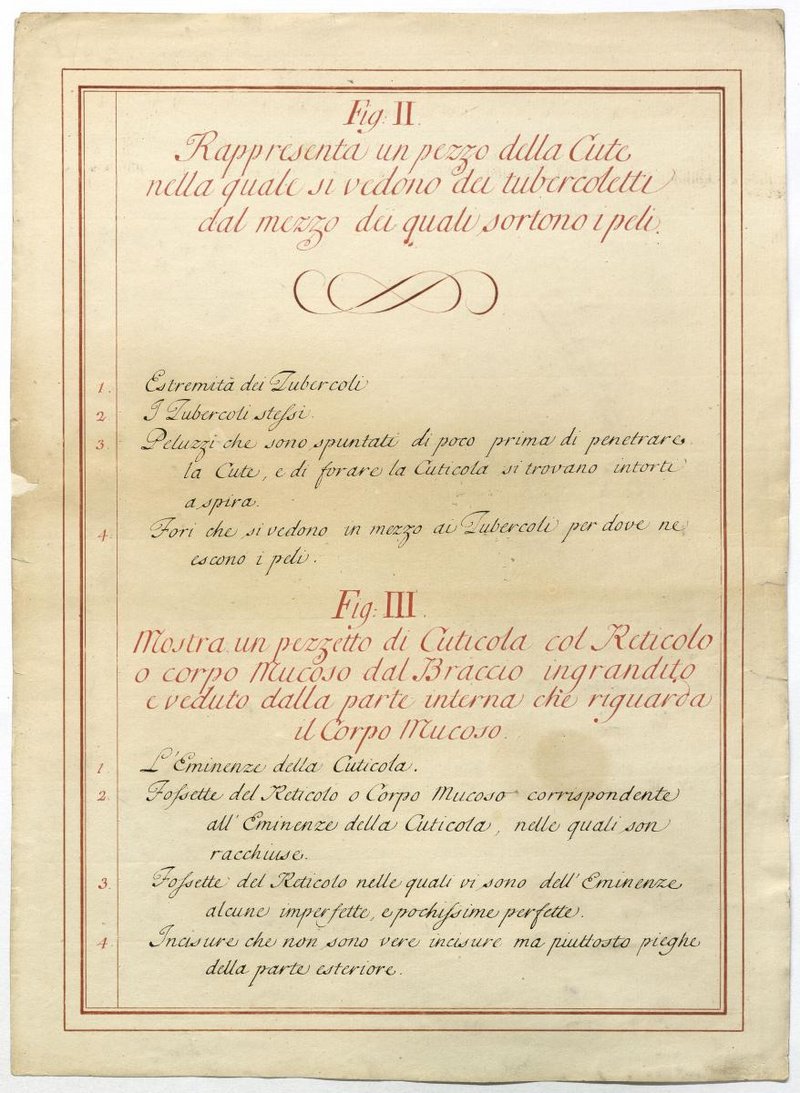 Fig: II.
Rappresenta un pezzo della Cute
nella quale si vedono dei tubercoletti
dal mezzo dei quali sortono i peli.
1. Estremità dei Tubercoli
2. I Tubercoli stessi.
3. Peluzzi che sono spuntati di poco prima di penetrare
la Cute, e di forare la Cuticola si trovano intorti
a spira.
4. Fori che si vedono in mezzo ai Tubercoli per dove ne
escono i peli.
Fig: III.
Mostra un pezzetto di Cuticola col Reticolo
o corpo Mucoso dal Braccio ingrandito
e veduto dalla parte interna che riguarda
il Corpo Mucoso.
1. L'Eminenze della Cuticola.
2. Fossette del Reticolo o Corpo Mucoso corrispondente
all'Eminenze della Cuticola, nelle quali son
racchiuse.
3. Fossette del Reticolo nelle quali vi sono dell'Eminenze
alcune imperfette, e pochissime perfette.
4. Incisure che non sono vere incisure ma piuttosto pieghe
della parte esteriore.